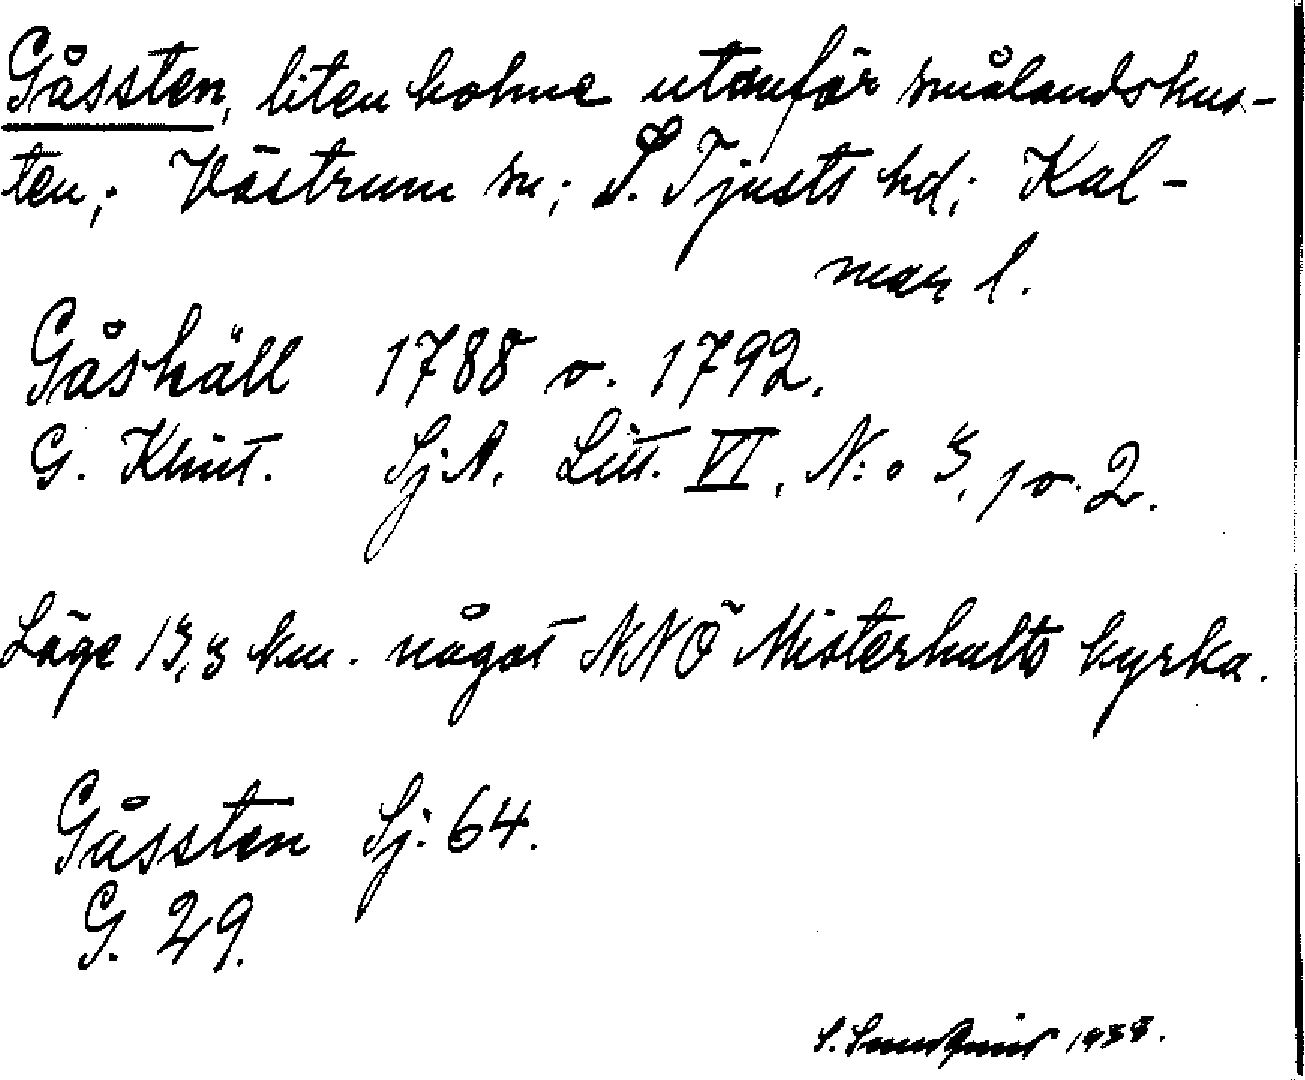 Gåssten, liten holme utanför smålandskus-
ten; Västrum sn; S. Tjusts hd; Kal-
mar l.
Gåshäll 1788 o. 1792.
G. Klint. Sj.A. Litt. VI, N:o 3, 1 o. 2.
Läge 13,3 km. något NNÖ Misterhults kyrka.
Gåssten Sj: 64.
G. 29.
S. 1938.